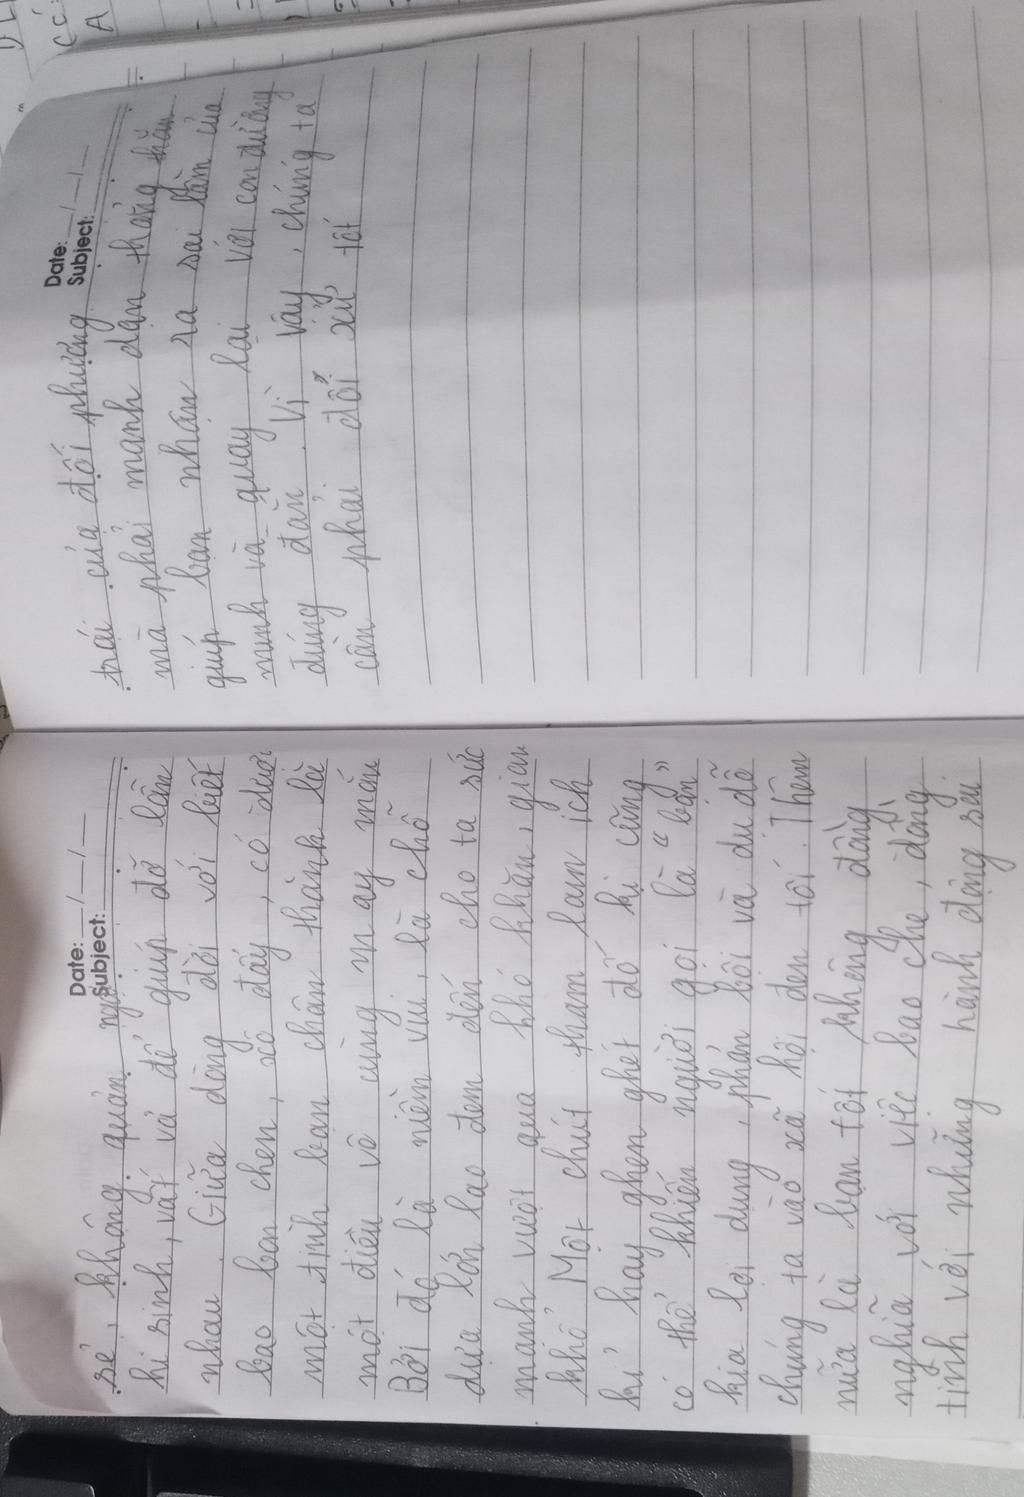 Date: _/_/_
Subject:
sẻ, không quản ngại
hi sinh, vất vả để giúp đỡ lẫn
nhau. Giữa dòng đời với biết
bao bon chen, xô đẩy, có được
một tình bạn chân thành là
một điều vô cùng may mắn
Bởi đó là niềm vui, là chỗ
dựa lớn lao đem đến cho ta sức
mạnh vượt qua khó khăn, gian
khổ. Một chút tham lam ích
kỉ hay ghen ghét đố kị cũng
có thể khiến người gọi là "bạn"
kia lợi dụng, phản bội và dụ dỗ
chúng ta vào xã hội đen tối. Thêm
nữa là bạn tốt không đồng
nghĩa với việc bao che, đồng
tình với những hành động sai
Date: _/_/_
Subject:
trái của đối phương
mà phải mạnh dạn thẳng thắn
giúp bạn nhận ra sai lầm của
mình và quay lại với con đường
đúng đắn. Vì vậy, chúng ta
cần phải đối xử tốt